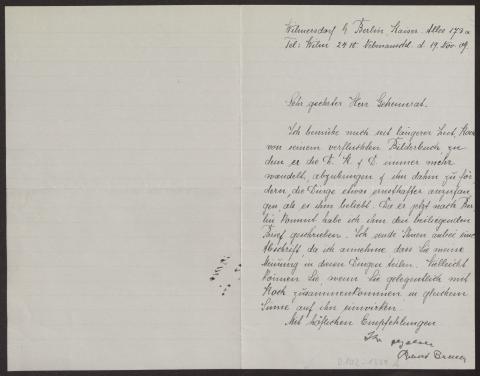 Wilmersdorf b/ Berlin, Kaiser-Allee 173 a
Tel: Wilm 24 d. 19. Nov 09.
Sehr geehrter Herr Geheimrat.
Ich bemühe mich seit längerer Zeit, Koch
von seinem verfluchten Bilderbuch, zu
dem er die D. K & D. immer mehr
wandelt, abzubringen & ihn dahin zu för
dern, die Dinge etwas ernsthafter anzufan
gen als es ihm beliebt. Da er jetzt nach Ber
lin kommt habe ich ihm den beiliegenden
Brief geschrieben. Ich sende Ihnen anbei eine
Abschrift, da ich annehme dass Sie meine
Meinung in diesen Dingen teilen. Vielleicht
können Sie, wenn Sie gelegentlich mit
Koch zusammenkommen in gleichem
Sinne auf ihn einwirken.
Mit höflichen Empfehlungen
Ihr